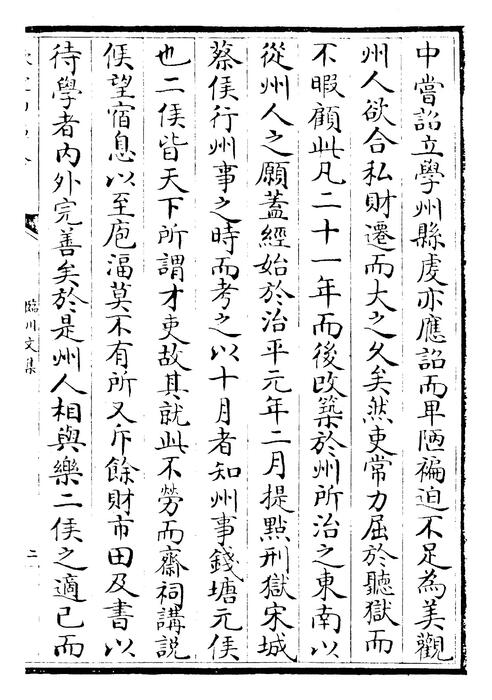 中嘗詔立學州縣䖍亦應詔而卑陋褊迫不足為美觀
州人欲合私財遷而大之久矣然吏常力屈於聽獄而
不暇顧此凡二十一年而後改築於州所治之東南以
從州人之願蓋經始於治平元年二月提點刑獄宋城
蔡侯行州事之時而考之以十月者知州事錢塘元侯
也二侯皆天下所謂才吏故其就此不勞而齋祠講說
候望宿息以至庖湢莫不有所又斥餘財市田及書以
待學者內外完善矣於是州人相與樂二侯之適己而
臨川文集
二